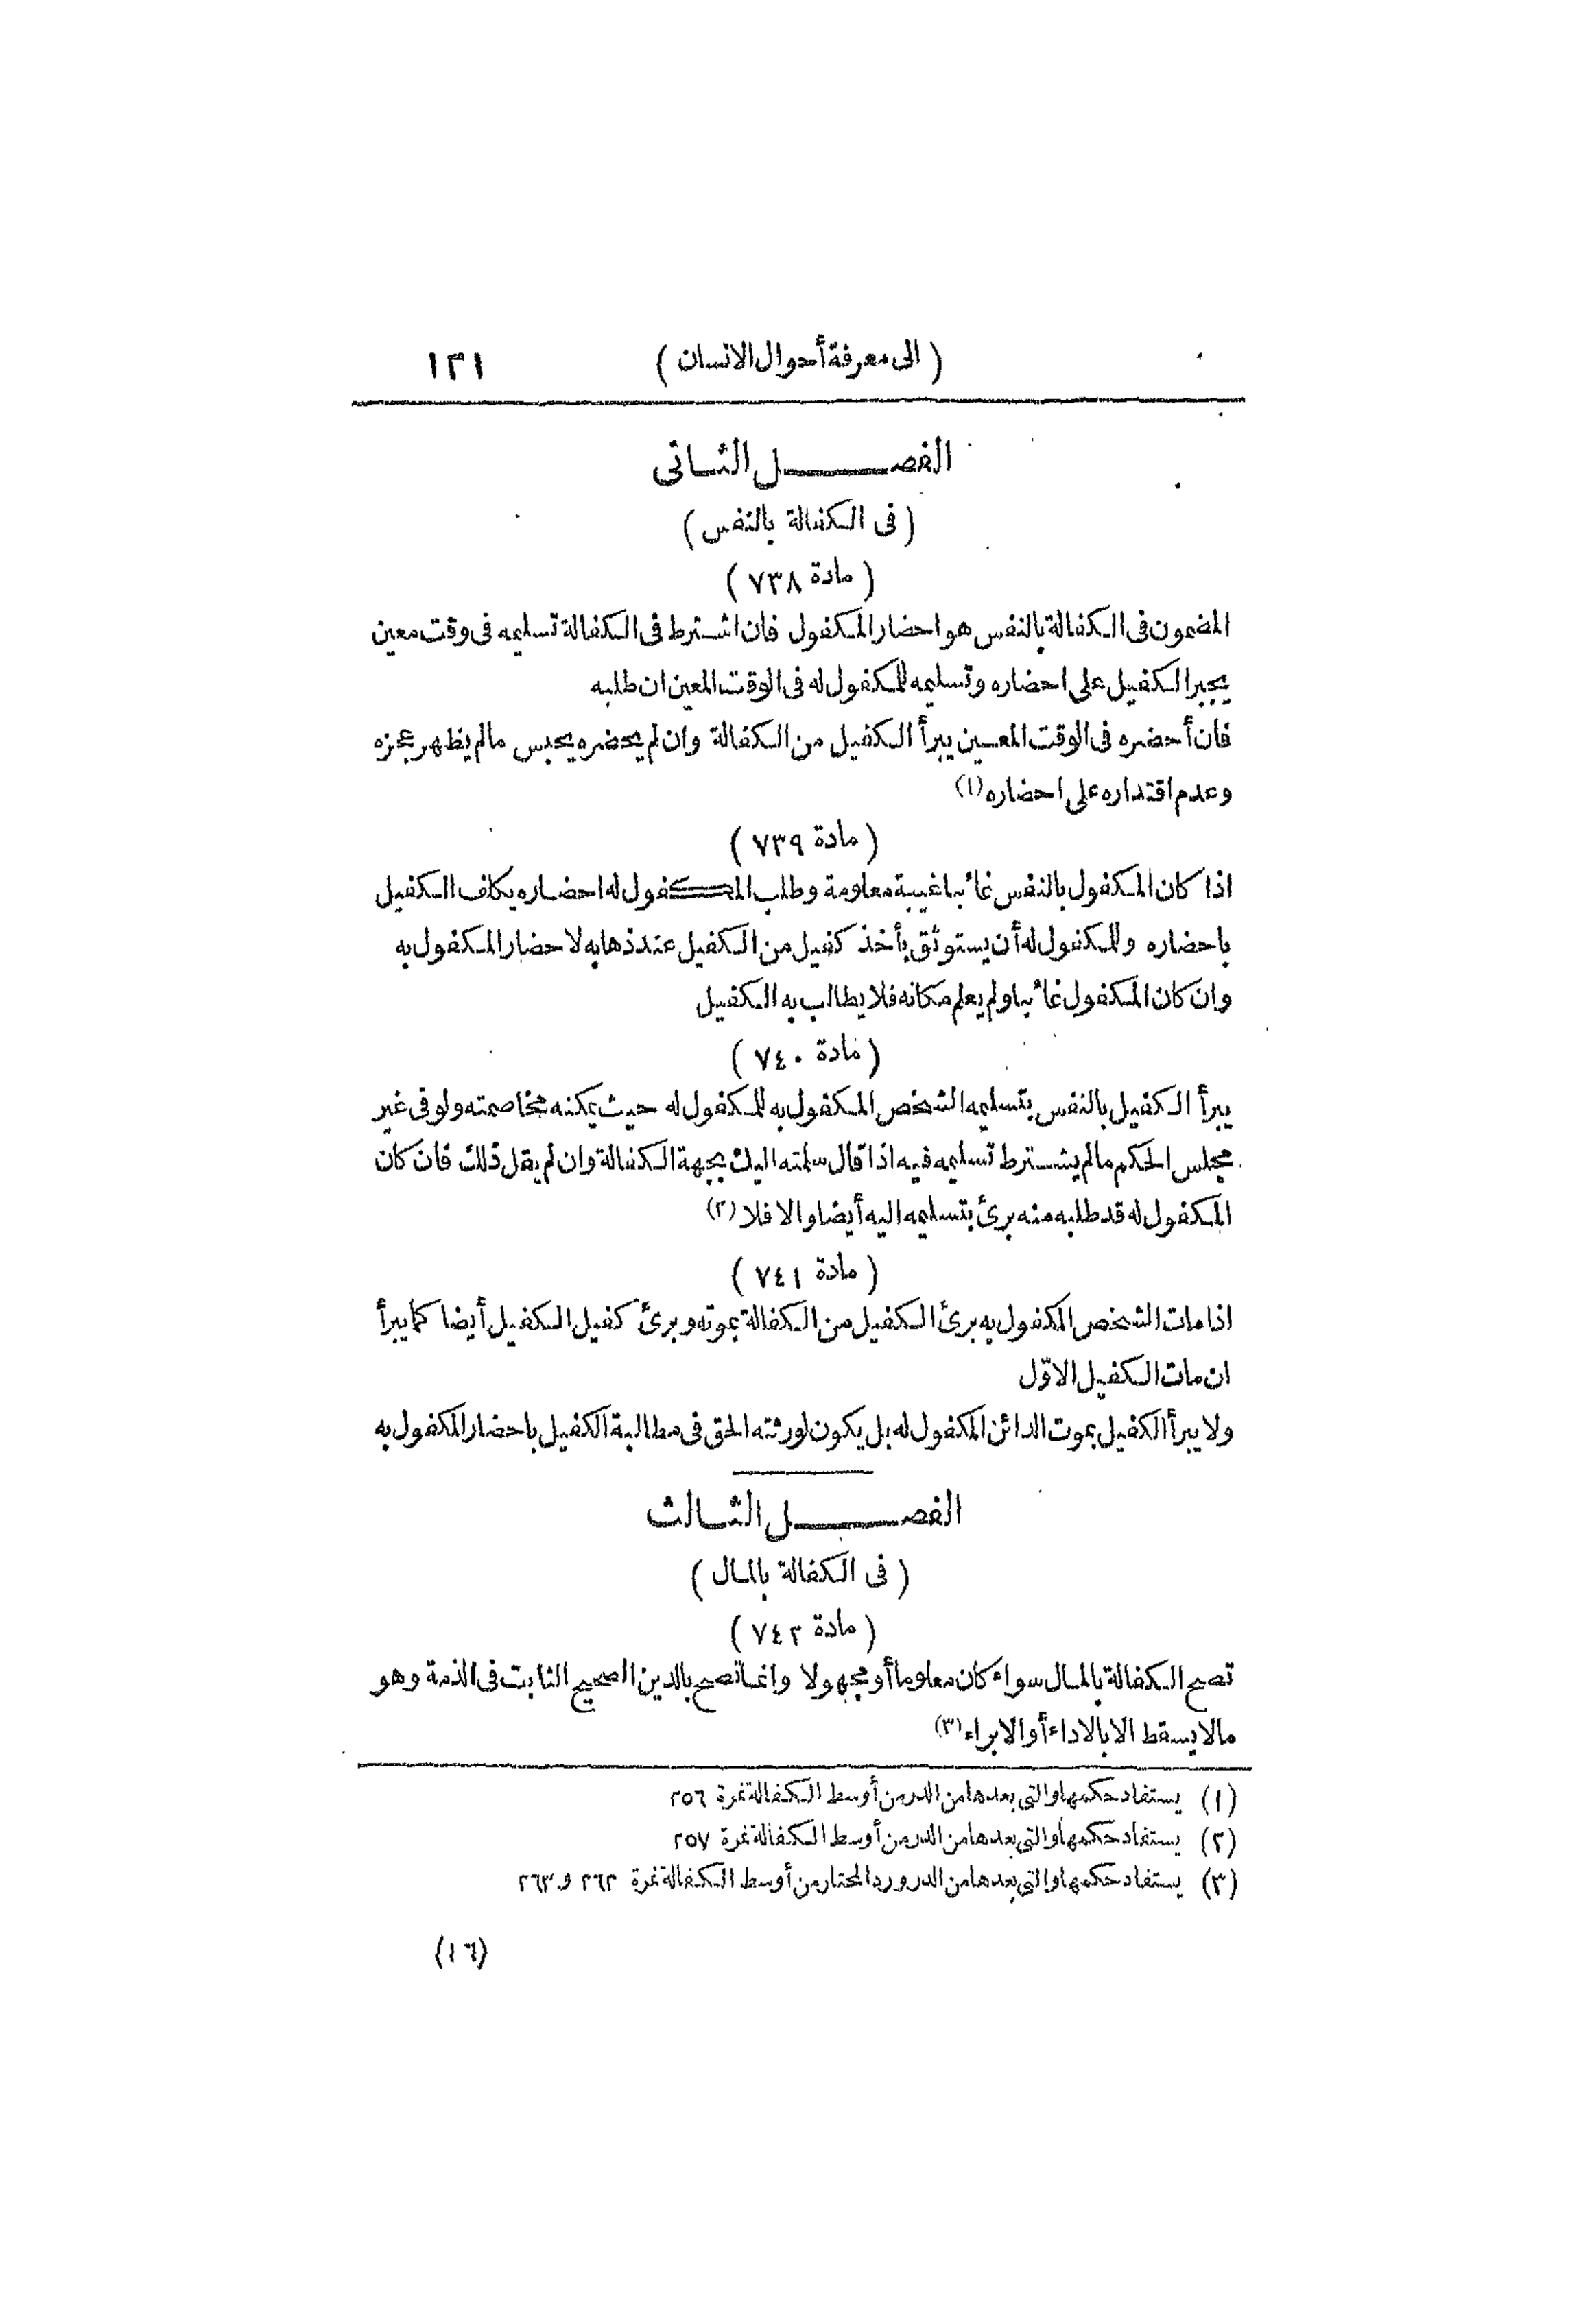 (الى معرفة أحوال الانسان) ١٢١
الفصل الثانى
(فى الكفالة بالنفس)
(مادة ٧٣٨)
المضمون فى الكفالة بالنفس هو احضار المكفول فان اشترط فى الكفالة تسليمه فى وقت معين
يجبر الكفيل على احضاره وتسليمه للمكفول له فى الوقت المعين ان طلبه
فان أحضره فى الوقت المعين يبرأ الكفيل من الكفالة وان لم يحضره يحبس مالم يظهر عجزه
وعدم اقتداره على احضاره (١)
(مادة ٧٣٩)
اذا كان المكفول بالنفس غائبا غيبة معلومة وطلب المكفول له احضاره يكلف الكفيل
باحضاره وللمكفول له أن يستوثق بأخذ كفيل من الكفيل عند ذهابه لاحضار المكفول به
وان كان المكفول غائبا ولم يعلم مكانه فلا يطالب به الكفيل
(مادة ٧٤٠)
يبرأ الكفيل بالنفس بتسليمه الشخص المكفول به للمكفول له حيث يمكنه مخاصمته ولو فى غير
مجلس الحكم مالم يشترط تسليمه فيه اذا قال سلمته اليك بجهة الكفالة وان لم يقل ذلك فان كان
المكفول له قد طلبه منه برئ بتسليمه اليه أيضا والا فلا (٢)
(مادة ٧٤١)
اذا مات الشخص المكفول به برئ الكفيل من الكفالة بموته وبرئ كفيل الكفيل أيضا كما يبرأ
ان مات الكفيل الاوّل
ولا يبرأ الكفيل بموت الدائن المكفول له بل يكون لورثته الحق فى مطالبة الكفيل باحضار المكفول به
الفصل الثالث
(فى الكفالة بالمال)
(مادة ٧٤٢)
تصح الكفالة بالمال سواء كان معلوما أو مجهولا وانما تصح بالدين الصحيح الثابت فى الذمة وهو
مالا يسقط الا بالاداء أو الابراء (٣)
(١) يستفاد حكمها والتى بعدها من الدر من أوسط الكفالة نمرة ٢٥٦
(٢) يستفاد حكمها والتى بعدها من الدر من أوسط الكفالة نمرة ٢٥٧
(٣) يستفاد حكمها والتى بعدها من الدر ورد المحتار من أوسط الكفالة نمرة ٢٦٢ و ٢٦٣
(١٦)